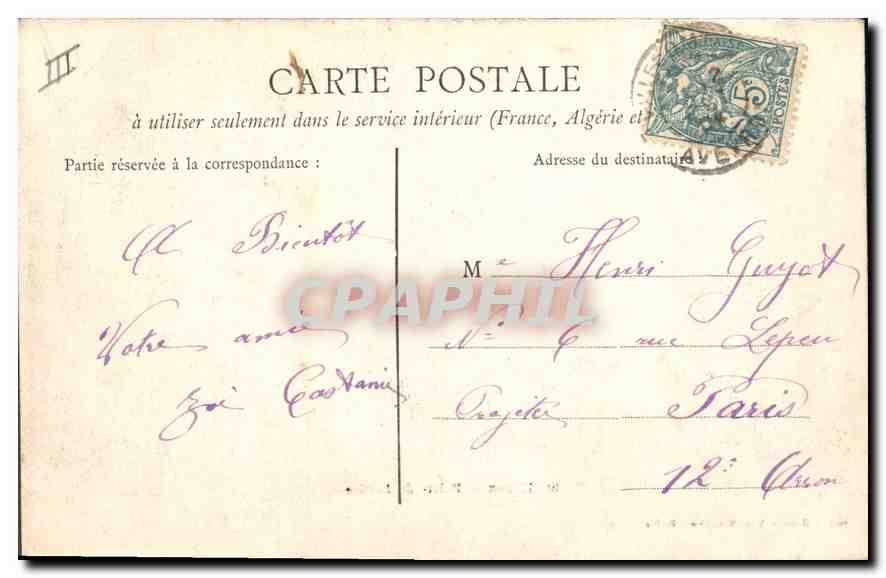 III
CARTE POSTALE
à utiliser seulement dans le service intérieur (France, Algérie et
Partie réservée à la correspondance :
Adresse du destinataire :
5c
POSTES
AVEYRON
A Bientôt
Votre amie
Zoé Castanié
Me Henri Guyot
No 6 rue Lepeu
Projetée Paris
12e Arron
CPAPHIL